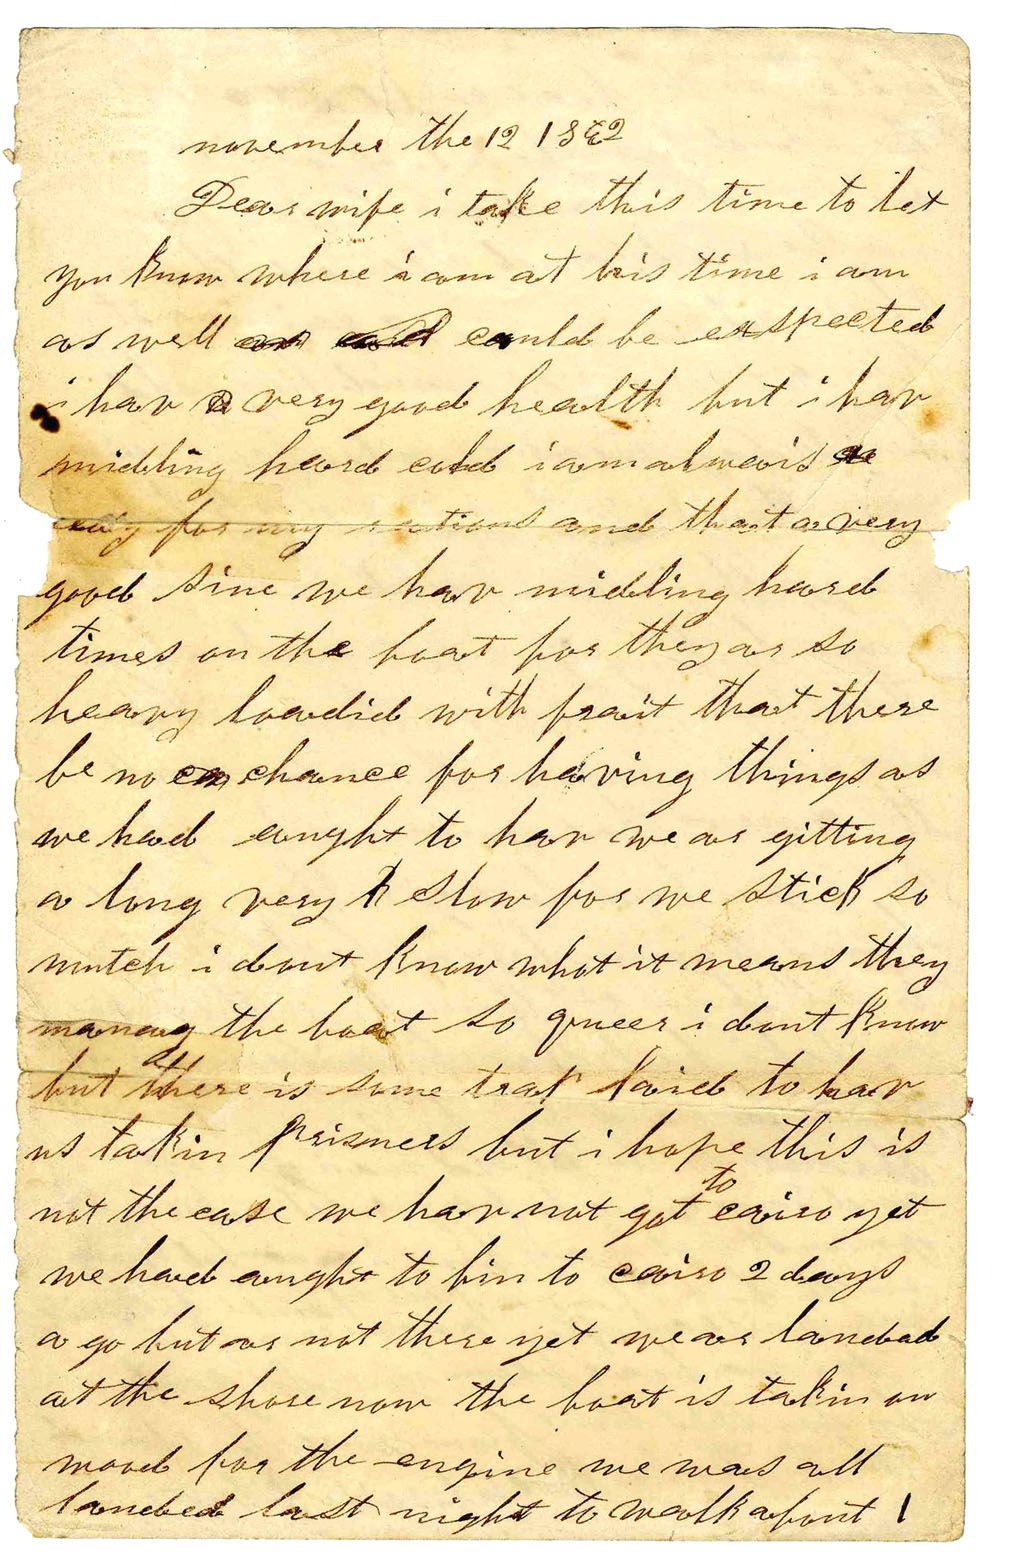 november the 12 1862
Dear wife i take this time to let
you know where i am at this time i am
as well could be exspected
i hav a very good health but i hav
midling hard cold i am alweais
redy for my rations and that a very
good sine we hav midling hard
times on the boat for they ar so
heavy loadid with frait that there
be no chance for having things as
we had aught to hav we ar gitting
a long very slow for we stick so
mutch i dont know what it means they
manag the boat so queer i dont know
but there is some trap laid to hav
us takin prisners but i hope this is
not the case we hav not got to cairo yet
we had aught to bin to cairo 2 days
a go but ar not there yet we ar landed
at the shore now the boat is takin on
wood for the engine we was all
landed last night to walk about 1